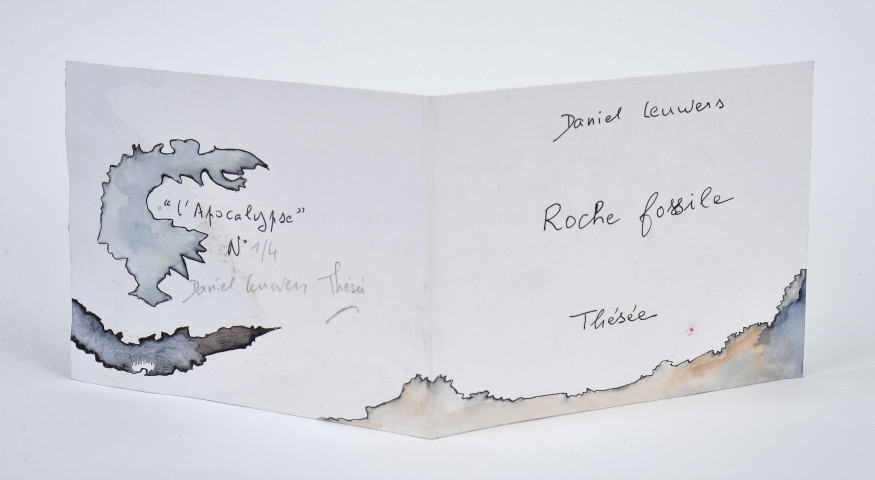 “l'Apocalypse”
N° 1/4
Daniel Leuwers Thésée
Daniel Leuwers
Roche fossile
Thésée